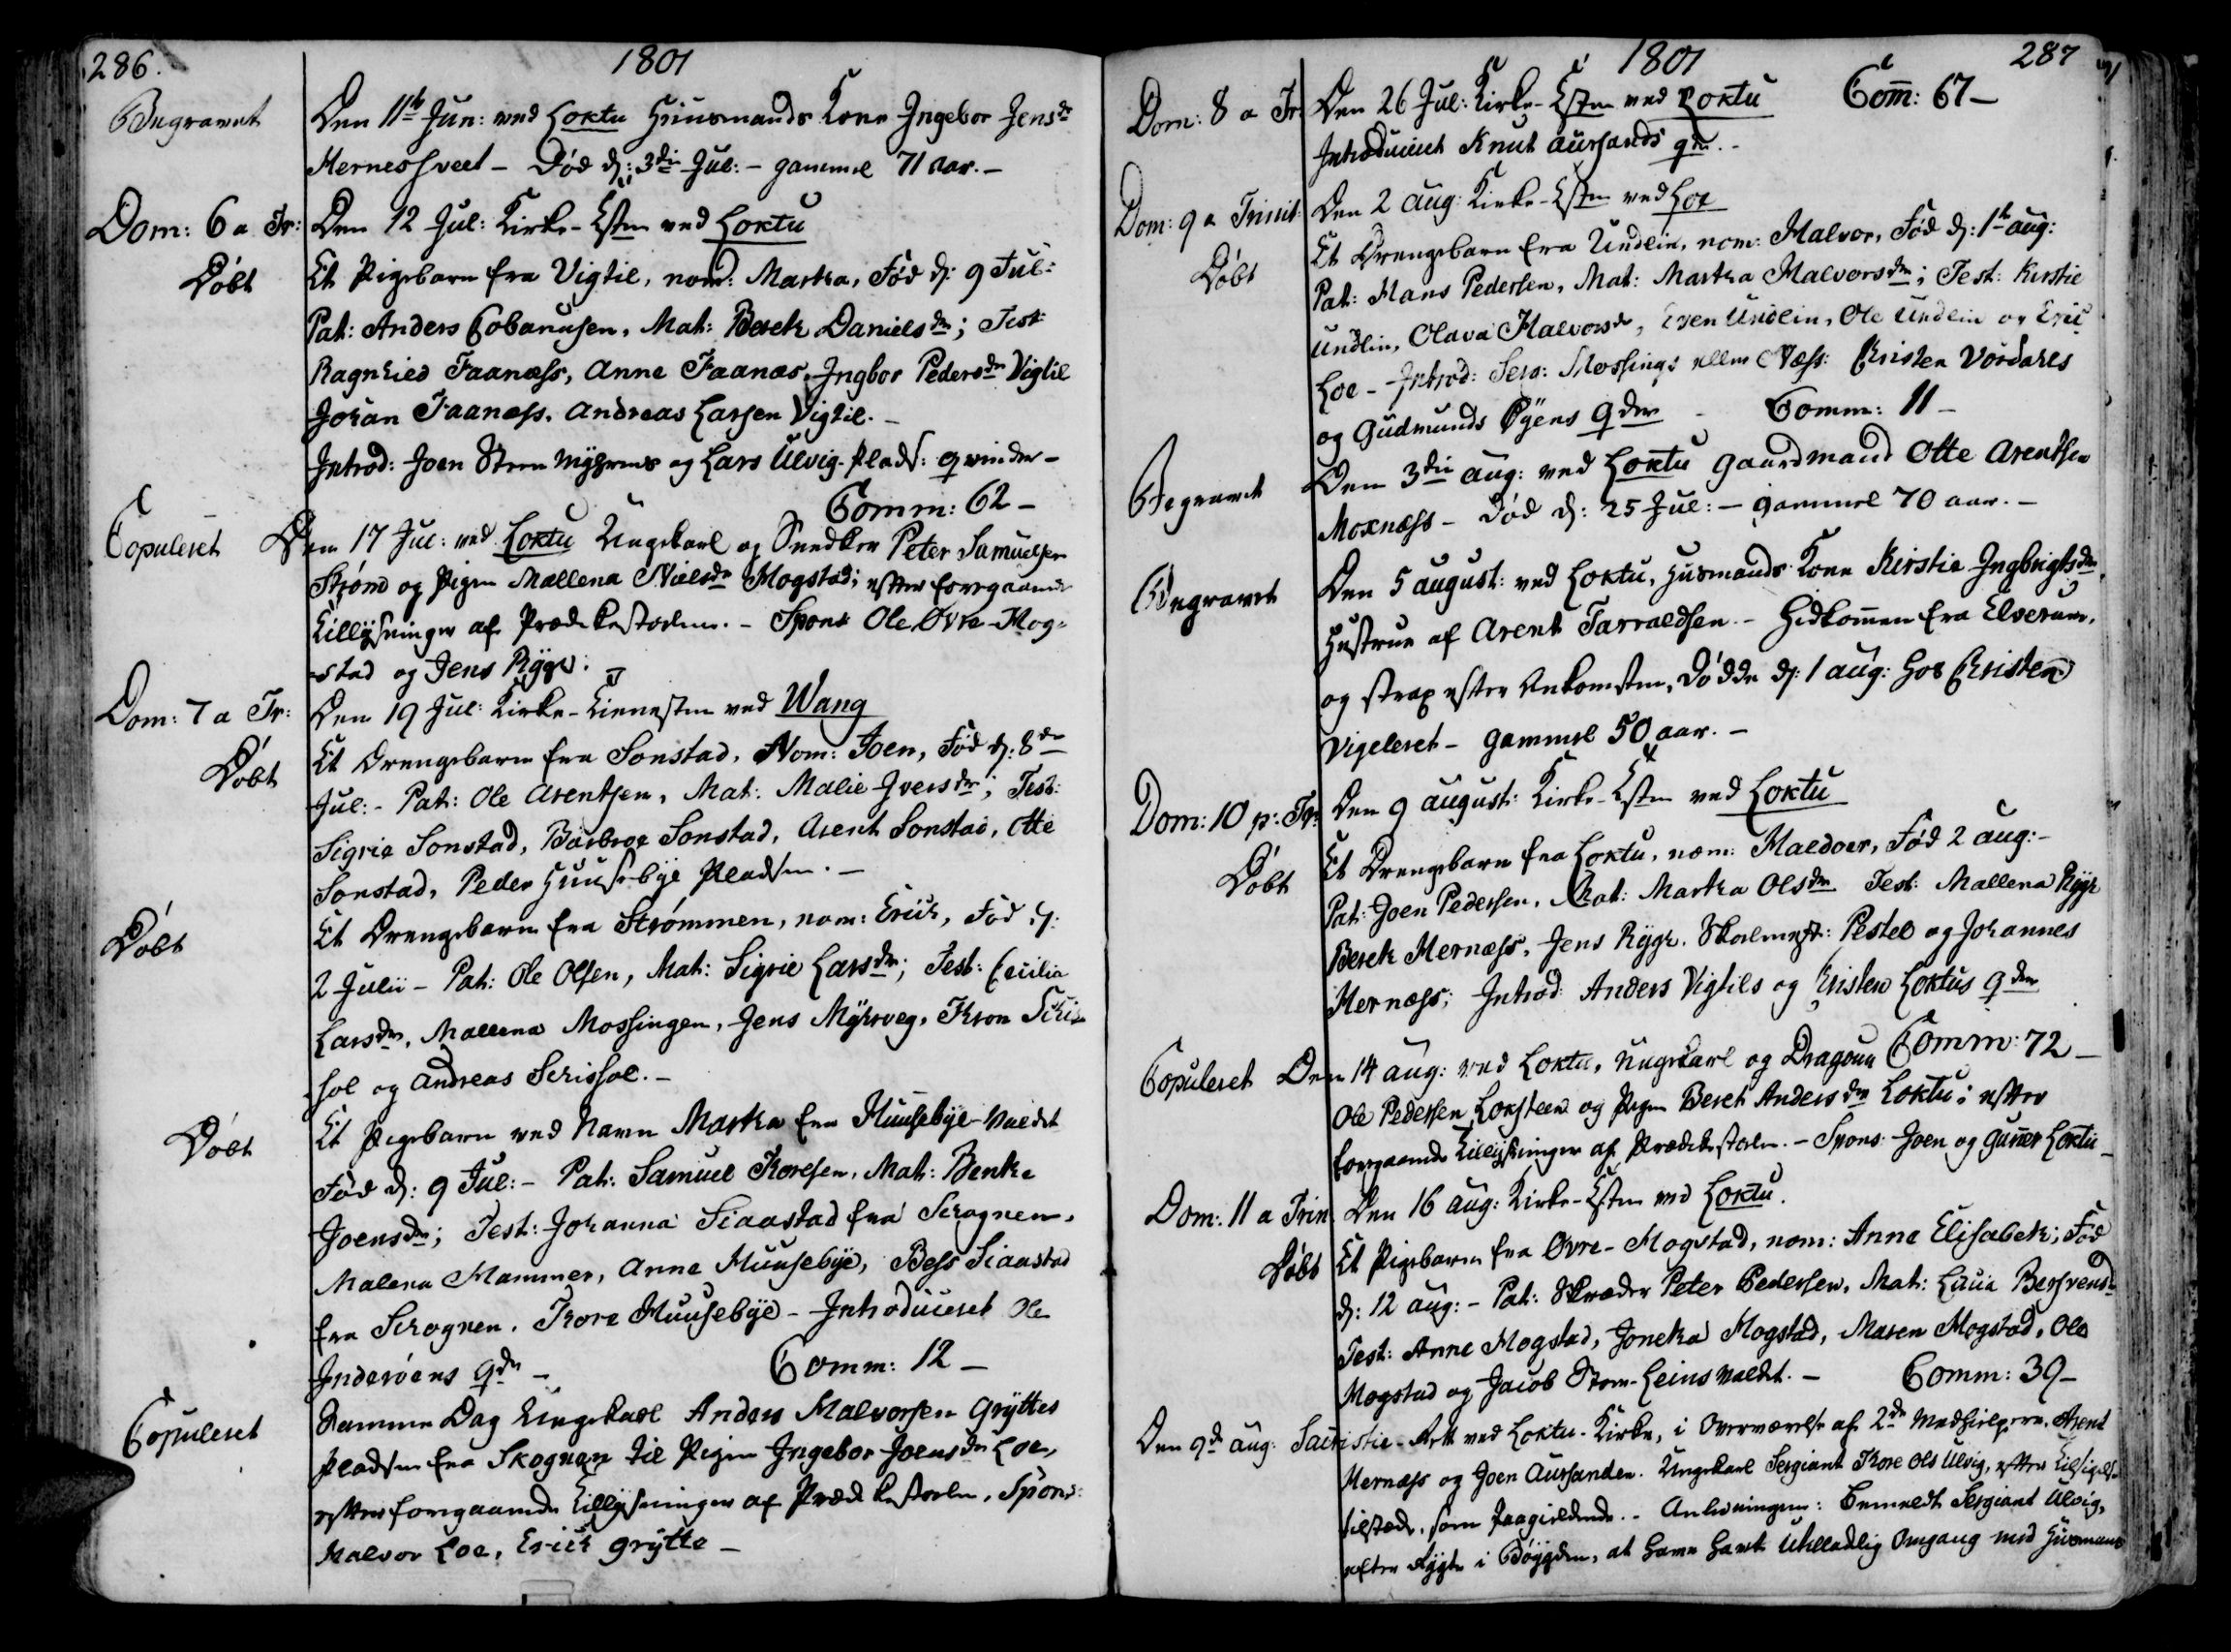 286.
1801
Begravet
Den 11te Jun: ved Loktu Huusmands Kone Ingebor Jensdr
Hernessveet - Død d: 3die Jul: - gammel 71 aar. -
Dom: 6 a Tr:
Den 12 Jul: Kirke-Tsten ved Loktu
Døbt
Et Pigebarn fra Vigtil, nom: Martha, Fød d: 9 Jul:
Pat: Anders Cobanusen, Mat: Bereth Danielsdr; Test:
Ragnhied Faanæss, Anne Faanæs, Ingbor Pedersdr Vigtil
Johan Faanæss, Andreas Larsen Vigtil. -
Introd: Joen Steen Myhrens og Lars Ulvig-Plads: qvinder -
Comm: 62 -
Copuleret
Den 17 Jul: ved Loktu Ungekarl og Snedker Peter Samuelsen
Strømd og Pigen Mallena Nielsdr Mogstad; efter foregaaende
Tillysninger af Prædikestolen. - Spons Ole Øvre-Mog-
-stad og Jens Rygg.
Dom: 7 a Tr:
Den 19 Jul: Kirke-Tienesten ved Wang
Døbt
Et Drengebarn fra Sonstad, Nom: Joen, Fød d: 8de
Jul: - Pat: Ole Arentsen, Mat: Malie Iversdr; Test:
Sigrie Sonstad, Barbroe Sonstad, Arent Sonstad, Otte
Sonstad, Peder Huusebye Pladsen. -
Døbt
Et Drengebarn fra Strømmen, nom: Erich, Fød d:
2 Julii - Pat: Ole Olsen, Mat: Sigrie Larsdr; Test: Cecilia
Larsdr, Mallena Mossingen, Jens Myhrveg, Thron Schis-
sol og Andreas Schissol. -
Døbt
Et Pigebarn ved Navn Martha fra Huusebye-Valdet
Fød d: 9 Jul: - Pat: Samuel Thoresen, Mat: Benthe
Joensdr; Test: Johanna Siaastad fra Schognen,
Malena Hammer, Anne Huusebye, Bess Siaastad
fra Schognen, Thore Huusebye - Introduceret Ole
Inderøens qdr -
Comm: 12 -
Copuleret
Samme Dag Ungekarl Anders Halvorsen Gryttes
Pladsen fra Skognen til Pigen Ingebor Joensdr Loe,
efter foregaaende Tillysninger af Prædikestolen, Spons:
Halvor Loe, Erich Grytte -
1801
287
Dom: 8 a Tr:
Den 26 Jul: Kirke-Tsten ved Loktu
Com̄: 67 -
Introduceret Knut Aursands qdr. -
Dom: 9 a Trinit:
Den 2 Aug: Kirke-Tsten ved Loe
Døbt
Et Drengebarn fra Undlin, nom: Halvor, Fød d: 1te Aug:
Pat: Hans Pedersen, Mat: Martha Halvorsdr; Test: Kirstie
Undlin, Olava Halvorsdr, Even Undlin, Ole Undlin og Eric
Loe - Introd: Serg: Mossings Næss: Christen Vordahls
og Gudmunds Øyens qder -
Comm: 11 -
Begravet
Den 3die Aug: ved Loktu Gaardmand Otte Arentsen
Moxnæss - Død d: 25 Jul: - gammel 70 aar. -
Begravet
Den 5 August: ved Loktu, Husmands Kone Kirstie Ingbrigtsdr,
Hustrue af Arent Tarraldsen. - Hidkom̄en fra Elverum,
og strax efter Ankomsten, Døde d: 1 Aug: hos Christen
Vigeleret - gammel 50 aar. -
Dom: 10 p: Tr:
Den 9 August: Kirke-Tsten ved Loktu
Døbt
Et Drengebarn fra Loktu, nom: Haldoer, Fød 2 Aug: -
Pat: Joen Pedersen, Mat: Martha Olsdr Test: Mallena Rygg
Bereth Hernæss, Jens Rygg, Skolemest: Pestel og Johannes
Hernæss; Introd: Anders Vigtils og Christen Loktus qder
Comm: 72 -
Copuleret
Den 14 Aug: ved Loktu, Ungekarl og Dragoun
Ole Pedersen Loksteen og Pigen Beret Andersdr Loktu; efter
foregaaende Tillysninger af Prædikestolen. - Spons: Joen og Gun̄er Loktu -
Dom: 11 a Trin:
Den 16 Aug: Kirke-Tsten ved Loktu.
Døbt
Et Pigebarn fra Øvre-Mogstad, nom: Anne Elisabeth; Fød
d: 12 Aug: - Pat: Skræder Peter Pedersen, Mat: Lucia Bersvensdr
Test: Anne Mogstad, Joneka Mogstad, Maren Mogstad, Ole
Mogstad og Jacob Leinsvaldet. -
Comm: 39 -
Den 9de Aug: Sacristie-Rett ved Loktu-Kirke, i Overværelse af 2de Medhielpere, Arent
Hernæss og Joen Aursanden. Ungekarl Sergiant Thore Ols Ulvig, efter Tilsigelse
tilstæde, som Paagieldende. - Anledningen: Bemeldt Sergiant Ulvig,
efter Rygte i Bøygden, at have havt utilladelig Omgang med Husmand